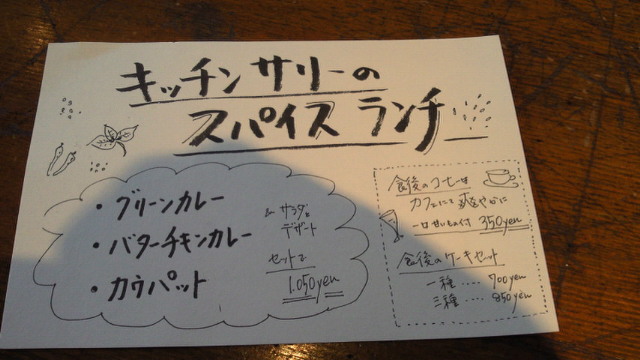 キッチンサリーの
スパイスランチ
・グリーンカレー
・バターチキンカレー
・カウパット
サラダ。
デザート
セットで
1.050yen
食後のコーヒーは
カフェにて
350yen
食後のケーキセット
一種 ‥‥ 700yen
三種 ‥‥ 850yen